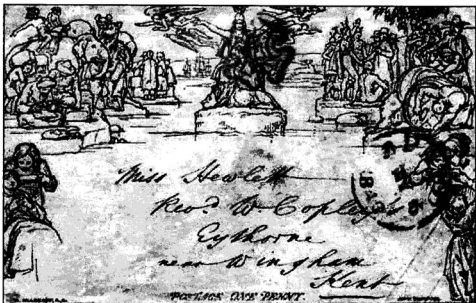 Miss Hewlett
Revd. W. Copley's
Eythorne
near Wingham
Kent
POSTAGE ONE PENNY.